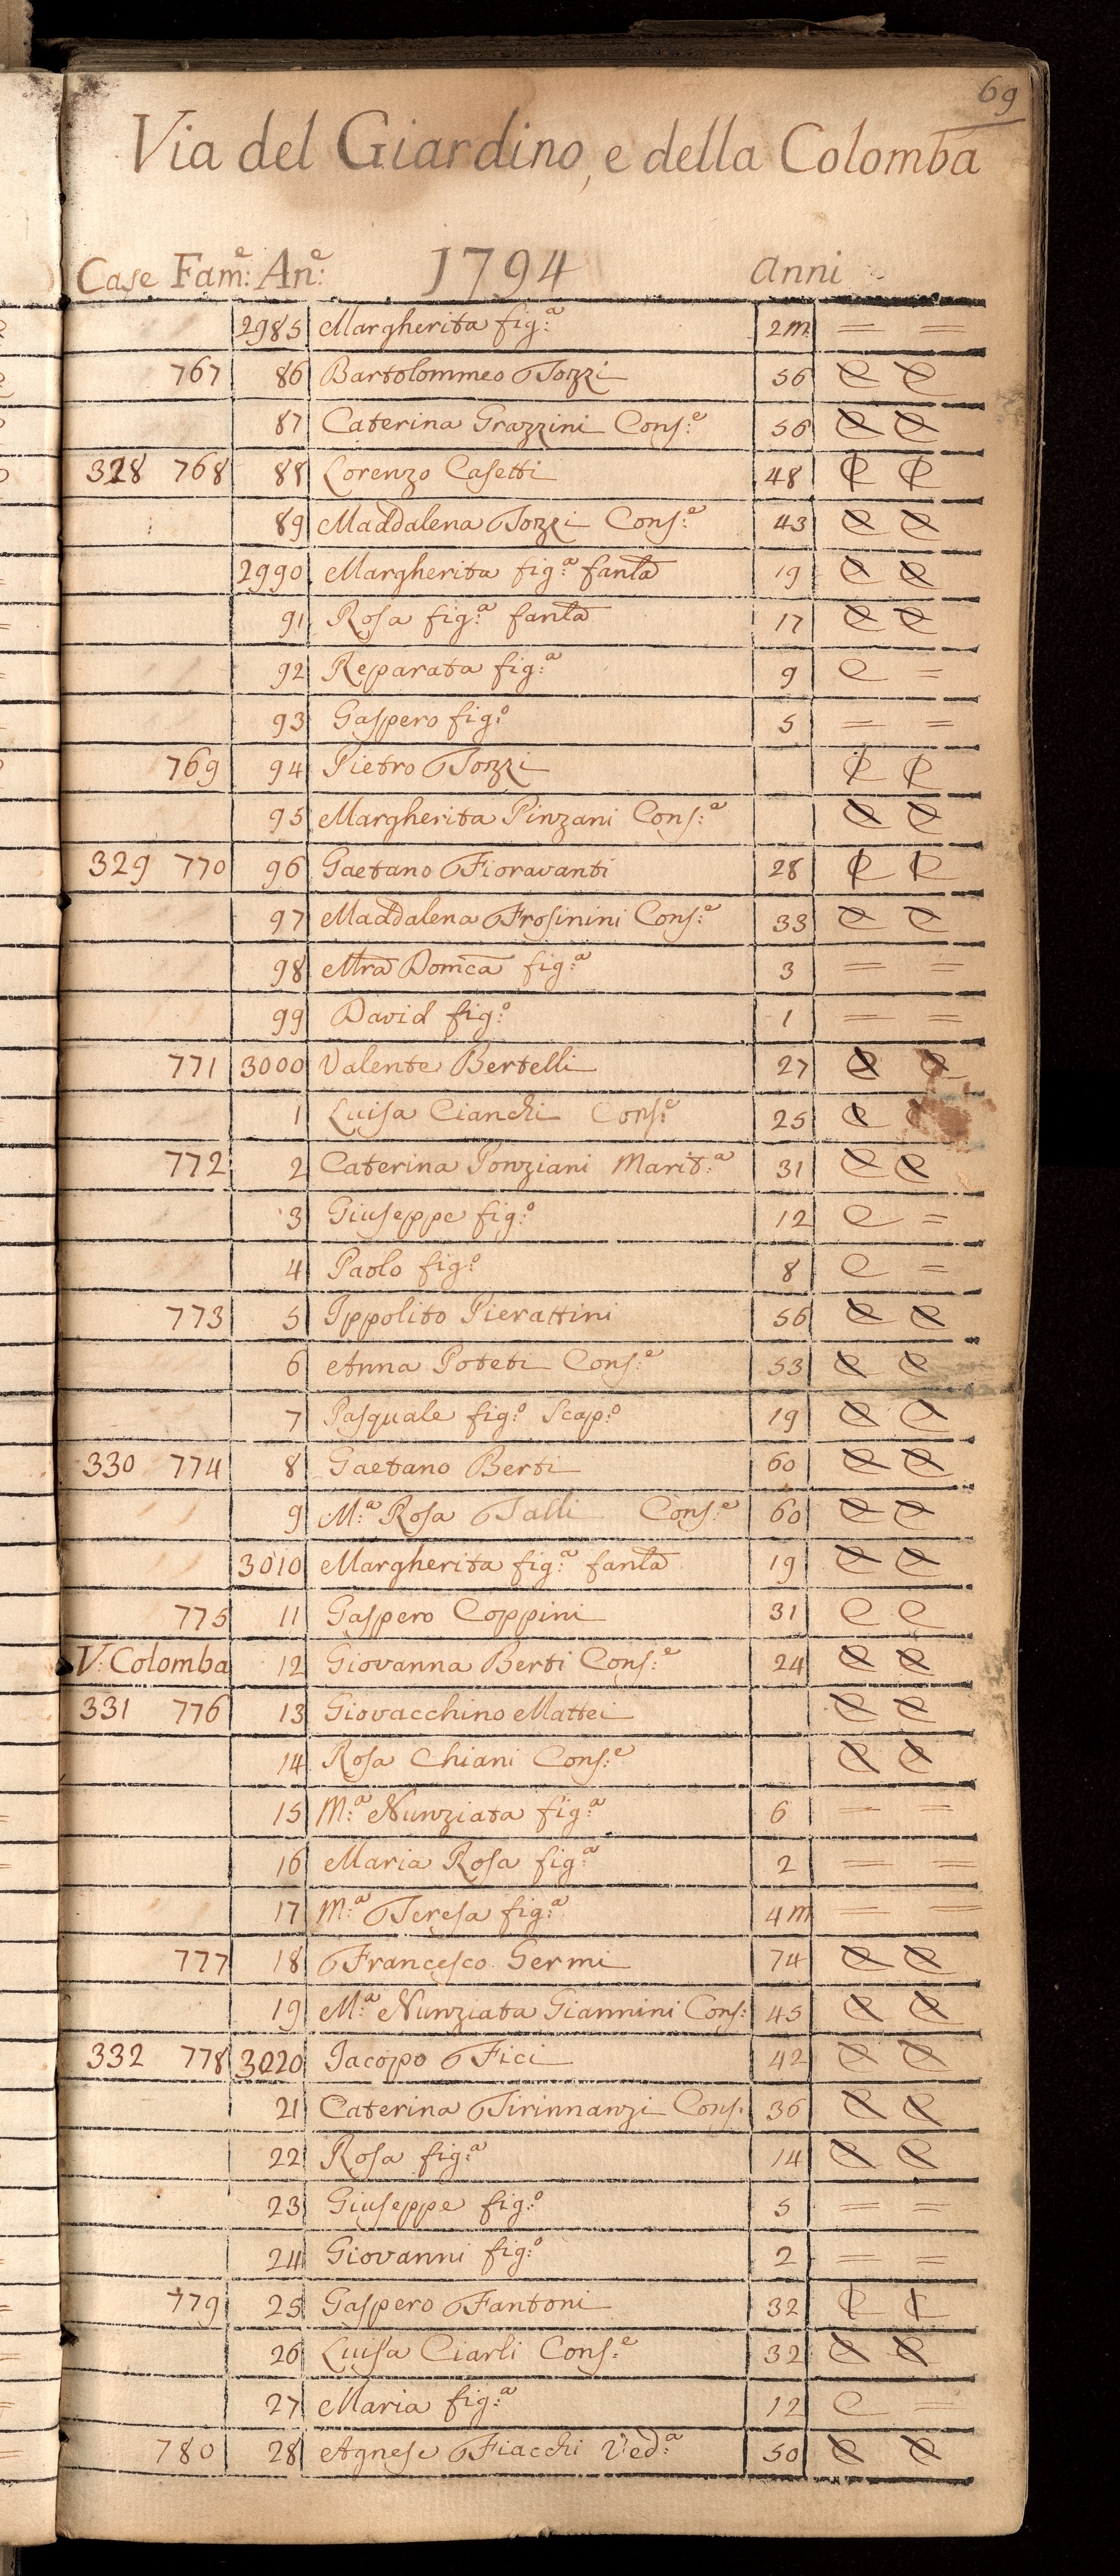 69
Via del Giardino, e della Colomba
Case Fam:e An:e 1794 anni
2985 Margherita fig:a 2m = =
767 86 Bartolommeo Tozzi 56 C C
87 Caterina Grazzini Cons:e 56 C C
328 768 88 Lorenzo Casetti 48 C C
89 Maddalena Tozzi Cons:e 43 C C
2990 Margherita fig:a fanla 19 C C
91 Rosa fig:a fanla 17 C C
92 Reparata fig:a 9 C =
93 Gaspero fig:o 5 = =
769 94 Pietro Tozzi C C
95 Margherita Pinzani Cons:a C C
329 770 96 Gaetano Fioravanti 28 C C
97 Maddalena Frosinini Cons:e 33 C C
98 Mra Domca fig:a 3 = =
99 David fig:o 1 = =
771 3000 Valente Bertelli 27 C C
1 Luisa Cianchi Cons:e 25 C
772 2 Caterina Ponziani Marit:a 31 C C
3 Giuseppe fig:o 12 C =
4 Paolo fig:o 8 C =
773 5 Ippolito Pierattini 56 C C
6 Anna Poteti Cons:e 53 C C
7 Pasquale fig:o Scap:o 19 C C
330 774 8 Gaetano Berti 60 C C
9 M:a Rosa Talli Cons:e 60 C C
3010 Margherita fig:a fanla 19 C C
775 11 Gaspero Coppini 31 C C
V: Colomba 12 Giovanna Berti Cons:e 24 C C
331 776 13 Giovacchino Mattei C C
14 Rosa Chiani Cons:e C C
15 M:a Nunziata fig:a 6 = =
16 Maria Rosa fig:a 2 = =
17 M:a Teresa fig:a 4m = =
777 18 Francesco Germi 74 C C
19 M:a Nunziata Giannini Cons: 45 C C
332 778 3020 Jacopo Fici 42 C C
21 Caterina Tirinnanzi Cons. 36 C C
22 Rosa fig:a 14 C C
23 Giuseppe fig:o 5 = =
24 Giovanni fig:o 2 = =
779 25 Gaspero Fantoni 32 C C
26 Luisa Ciarli Cons:e 32 C C
27 Maria fig:a 12 C =
780 28 Agnese Fiacchi Ved:a 50 C C